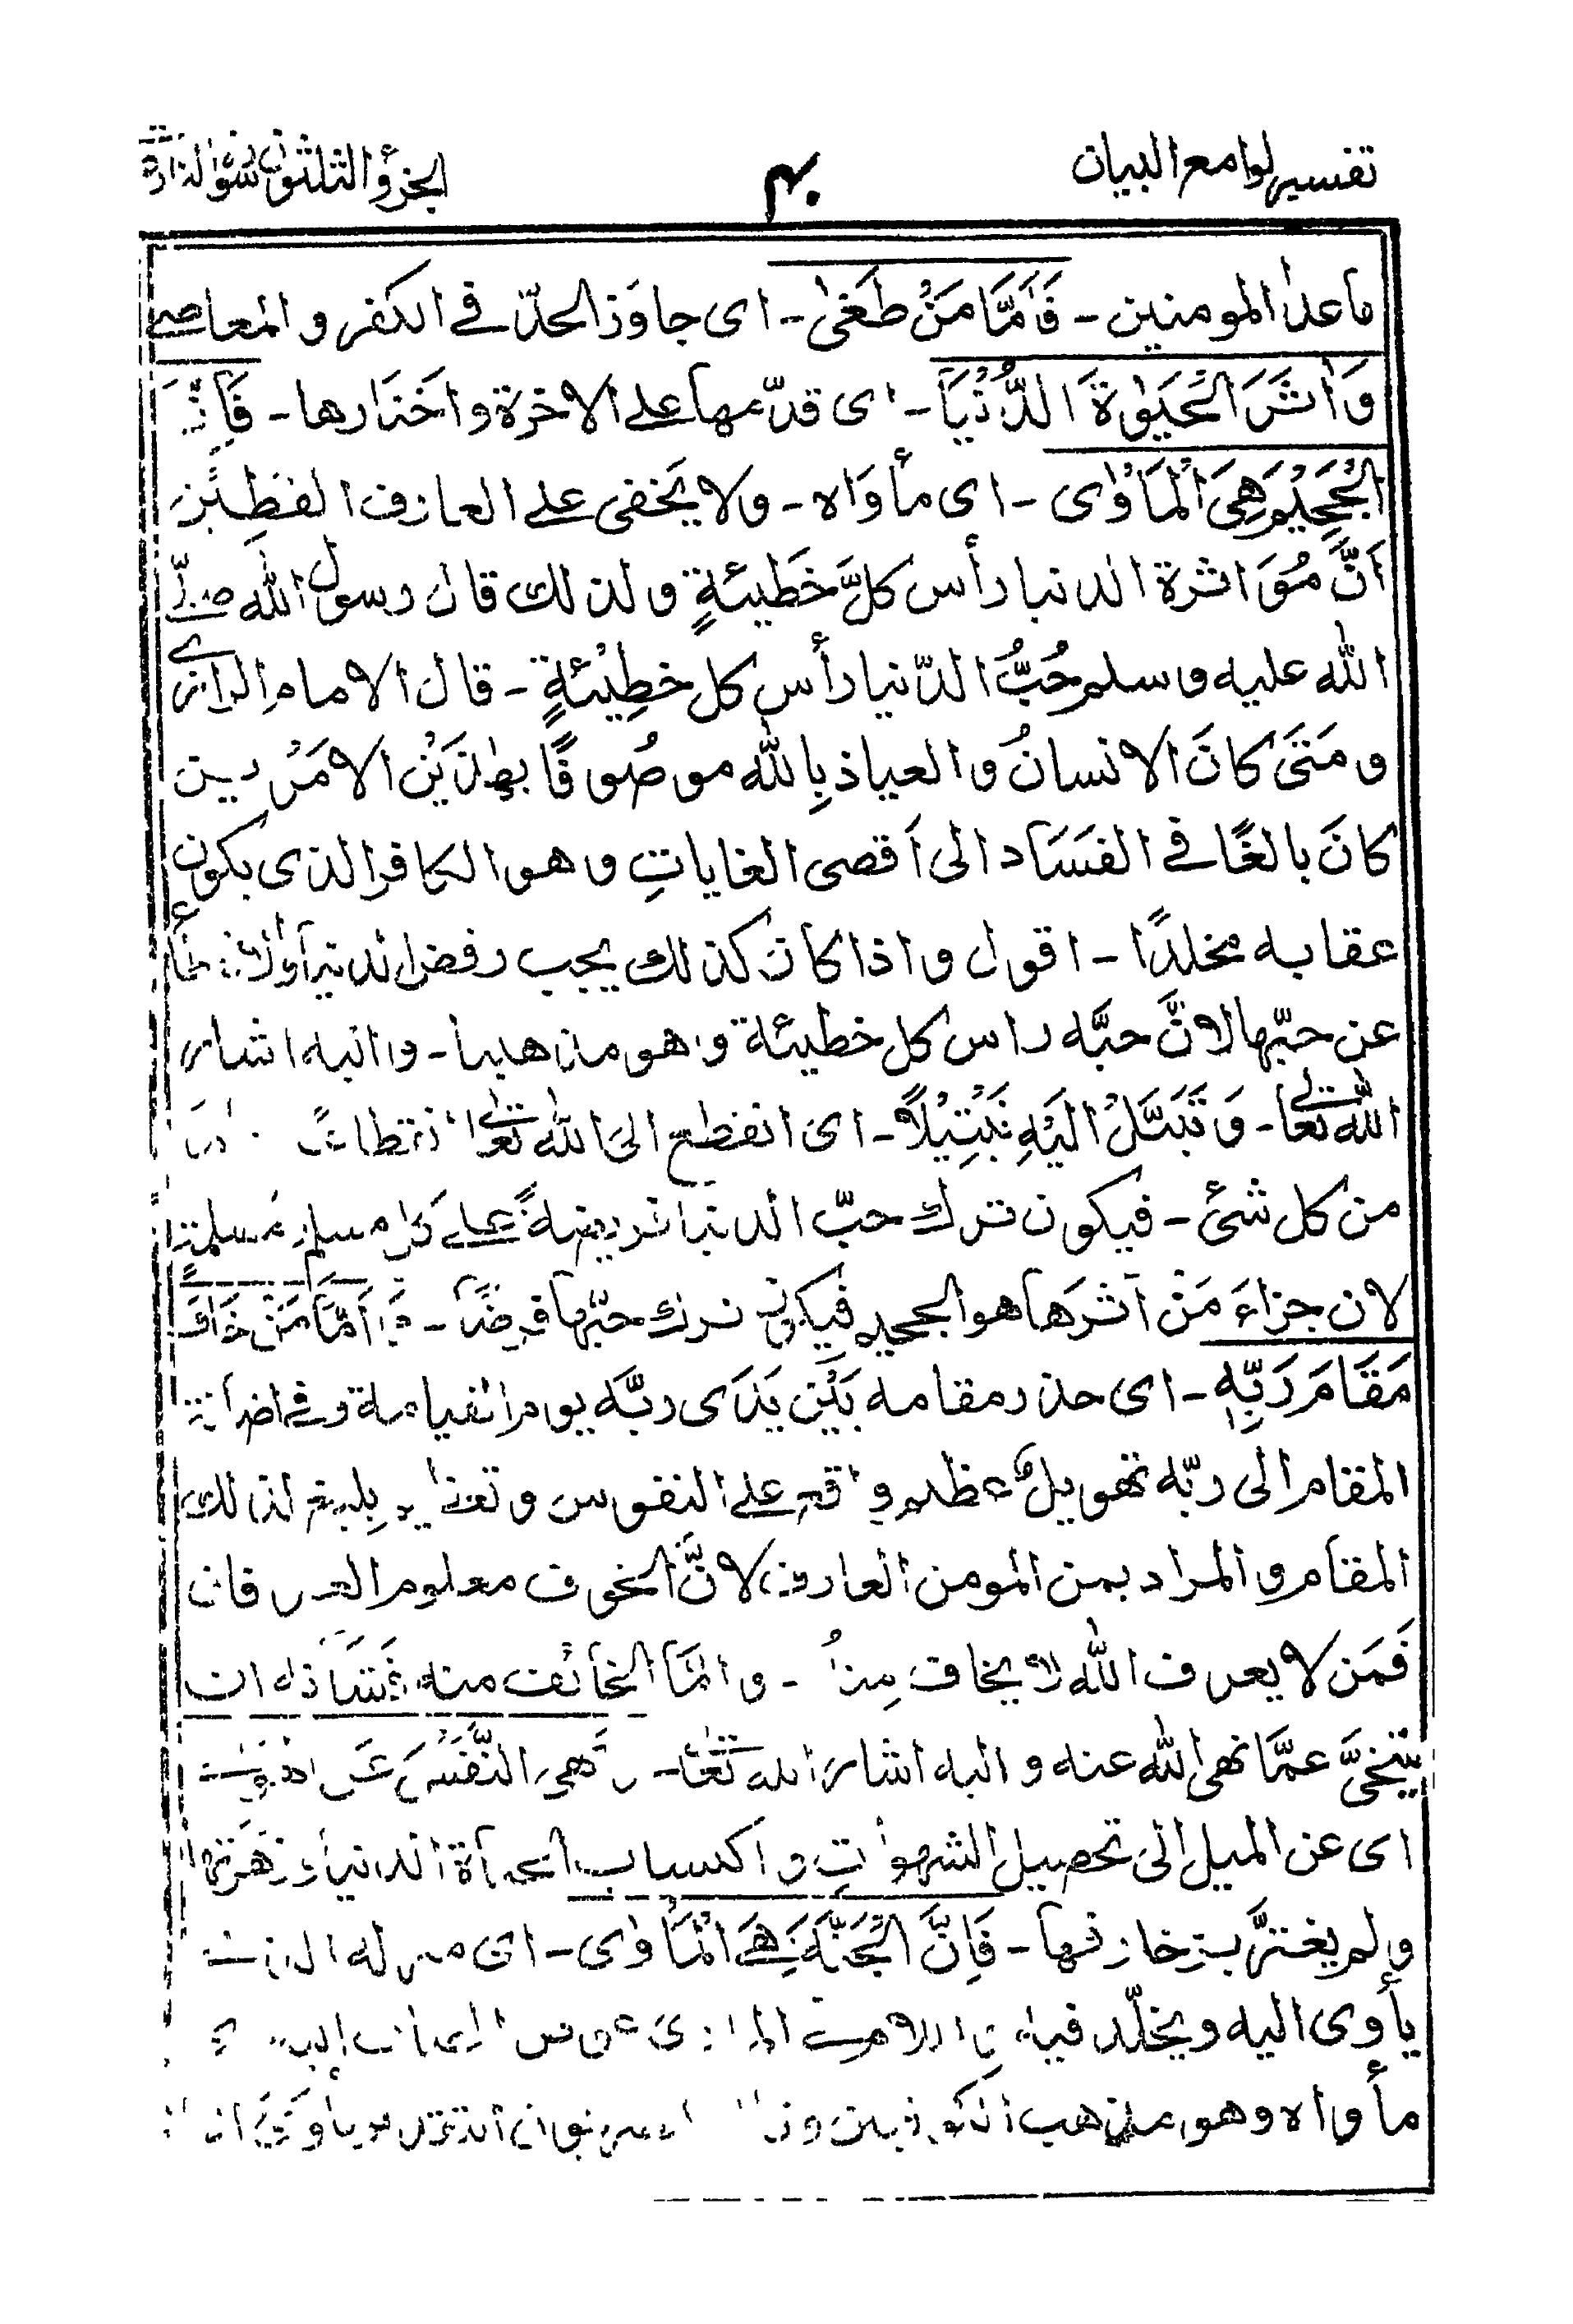 تفسیر لوامع البیان
۴۰
الجزؤ الثلثون سورة النازعات
ما عدا المومنین - فَاَمَّا مَنْ طَغٰی - ای جاوَزَ الحدّ فے الکفر و المعاصے
وَاٰثَرَ الْحَیٰوةَ الدُّنْیَا - ای قدّمها علے الاخرة واختارها - فَاِنَّ
الْجَحِیْمَ هِیَ الْمَاْوٰی - ای مأواہ - ولا یخفی علے العارف الفَطِین
اَنَّ مُوَاثرة الدنیا رأس کلّ خَطیئةٍ ولذلك قال رسول الله صلّے
الله علیه وسلم حُبُّ الدّنیا رأس کل خطِیْئةٍ - قال الامام الرازی
و مَتَی کانَ الانسانُ والعیاذ بِالله موصُوفًا بهٰذَیْنِ الامَرْین
کانَ بالغًا فے الفَسَاد الی اَقصی الغایاتِ وهو الکافر الذی یکون
عقابه مخلدًا - اقول واذا کان کذلك یجب رفض الدنیا
عن حبّها لانَّ حبَّه راس کل خطیئة وهو مذهبنا - والیه اشار
الله تعالے - وَتَبَتَّلْ اِلَیْهِ تَبْتِیْلًا - ای انقطع الی الله تعالے انقطاعًا
من کل شئ - فیکون ترك حبّ الدنیا فریضةً علے کل مسلم و مسلمة
لان جزاءَ مَنْ آثرَها هو الجحیم فیکون ترك حبّها فرضًا - وَاَمَّا مَنْ خَافَ
مَقَامَ رَبِّهٖ - ای حذر مقامه بَیْنَ یَدَی ربّه یوم القیامة وفے اضافة
المقام الی ربّه تهویل عظیم واقع علے النفوس و بلیغ لذلك
المقام و المراد بمن المومن العارف لانَّ الخوف معلوم العرفان
فَمَن لا یعرف الله لا یخاف منهُ - وامّا الخائف منه فشانه ان
یتنحیَّ عمّا نهی الله عنه والیه اشار الله تعالے - وَنَهَی النَّفْسَ عَنِ الْهَوٰی
ای عن المیل الی تحصیل الشهوٰاتِ واکتساب الدنیا و زهرتها
ولم یغترَّ بزخارفها - فَاِنَّ الْجَنَّةَ هِیَ الْمَاْوٰی - ای منزله الذی
یأوی الیه ویخلّد فیه
مأواه وهو مذهب الکوفیین